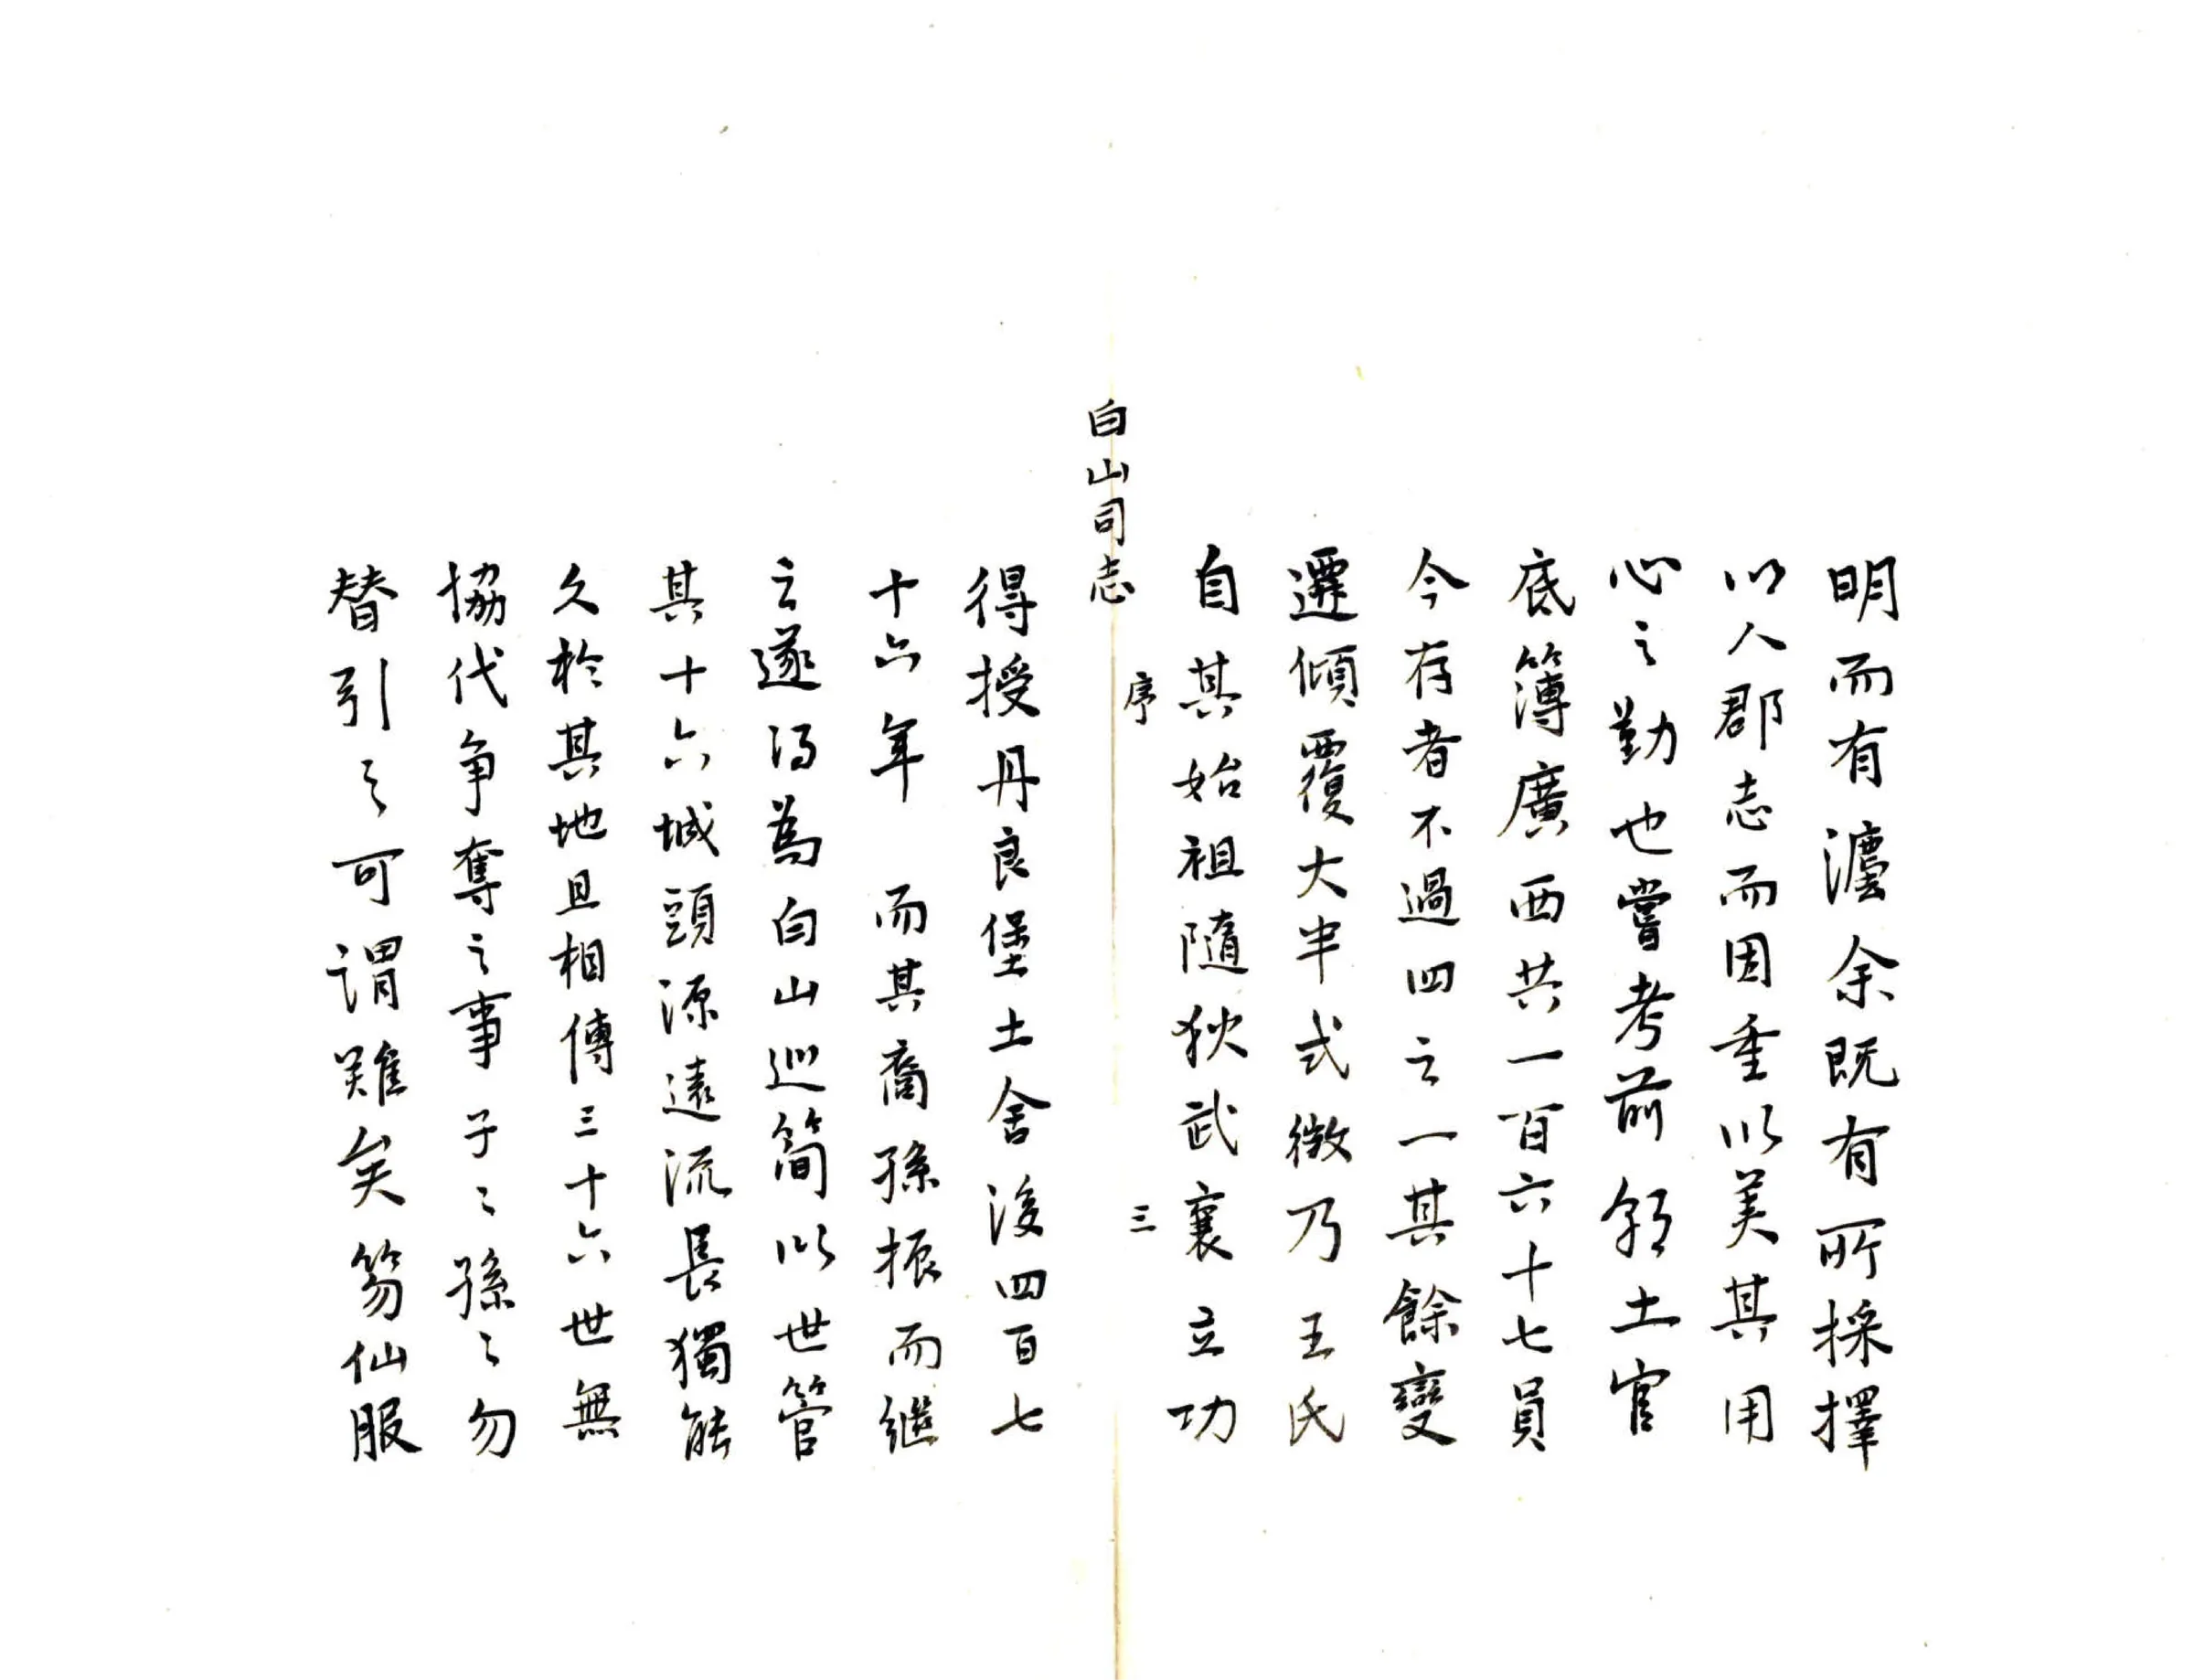 明而有瀍余既有所採擇
以人郡志而因重以美其用
心之勤也嘗考前朝土官
底簿廣西共一百六十七員
今存者不過四之一其餘變
遷傾覆大半式微乃王氏
自其始祖隨狄武襄立功
白山司志
序
三
得授丹良堡土舍後四百七
十六年而其裔孫振而繼
之遂得為白山巡簡以世管
其十六城頭源遠流長獨能
久於其地且相傳三十六世無
協代争奪之事子〻孫〻勿
替引之可謂難矣笏仙服